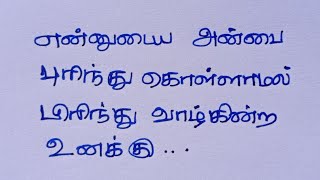 என்னுடைய அன்பை
புரிந்து கொள்ளாமல்
பிரிந்து வாழ்கின்ற
உனக்கு...